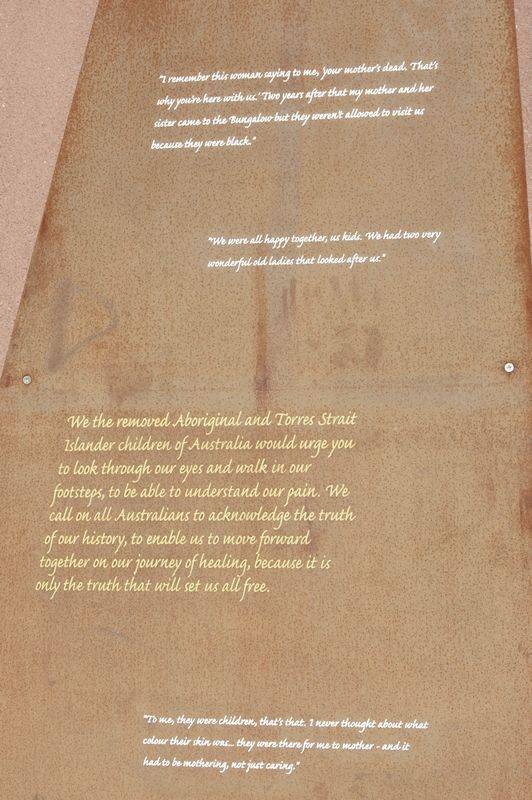 "I remember this woman saying to me, 'your mother's dead. That's
why you're here with us.' Two years after that my mother and her
sister came to the Bungalow but they weren't allowed to visit us
because they were black."
"We were all happy together, us kids. We had two very
wonderful old ladies that looked after us."
We the removed Aboriginal and Torres Strait
Islander children of Australia would urge you
to look through our eyes and walk in our
footsteps, to be able to understand our pain. We
call on all Australians to acknowledge the truth
of our history, to enable us to move forward
together on our journey of healing, because it is
only the truth that will set us all free.
"To me, they were children, that's that. I never thought about what
colour their skin was... they were there for me to mother - and it
had to be mothering, not just caring."